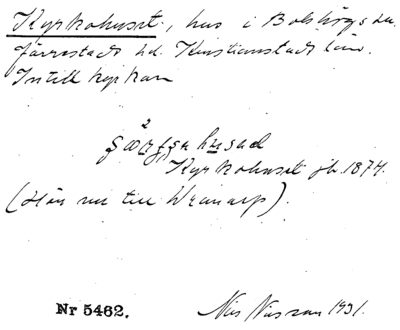 Kyrkohuset, hus i Bolshögs sn.
Järrestads hd. Kristianstads län.
Intill kyrkan
Kyrkohuset jb. 1874.
(Hör nu till Wranarp).
Nr 5462. Nils Nilsson 1931.